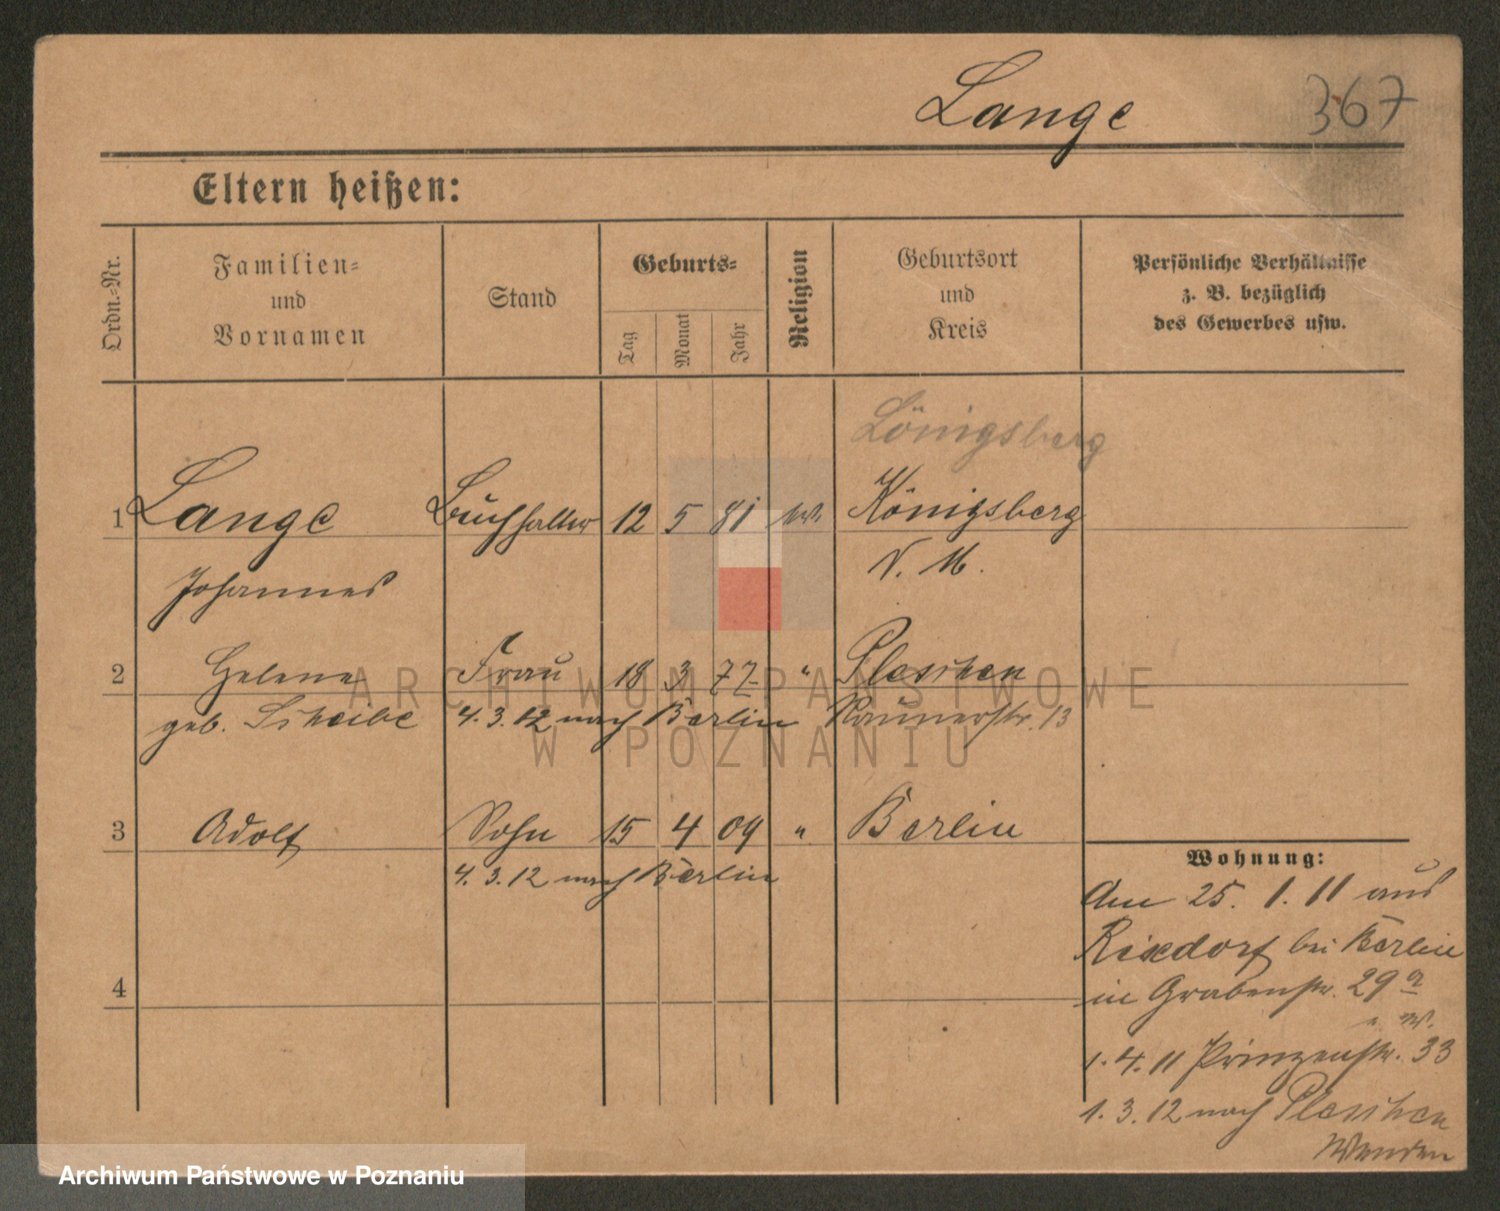 Lange 367
Eltern heißen:
Ordn.-Nr.
Familien-
und
Vornamen
Stand
Geburts-
Tag
Monat
Jahr
Religion
Geburtsort
und
Kreis
Persönliche Verhältnisse
z. B. bezüglich
des Gewerbes usw.
Königsberg
1 Lange Buchhalter 12 5 81 ev. Königsberg
Johannes N. M.
2 Helene Frau 18 3 77 " Pleschen
geb. Scheibe 4. 3. 12 nach Berlin Raumerstr. 13
3 Adolf Sohn 15 4 09 " Berlin
4. 3. 12 nach Berlin
4
Wohnung:
Am 25. 1. 11 aus
Rixdorf bei Berlin
in Grabenstr. 29 a
1. 4. 11 Prinzenstr. 33
1. 3. 12 nach Pleschen
Wenden
ARCHIWUM PAŃSTWOWE
W POZNANIU
Archiwum Państwowe w Poznaniu